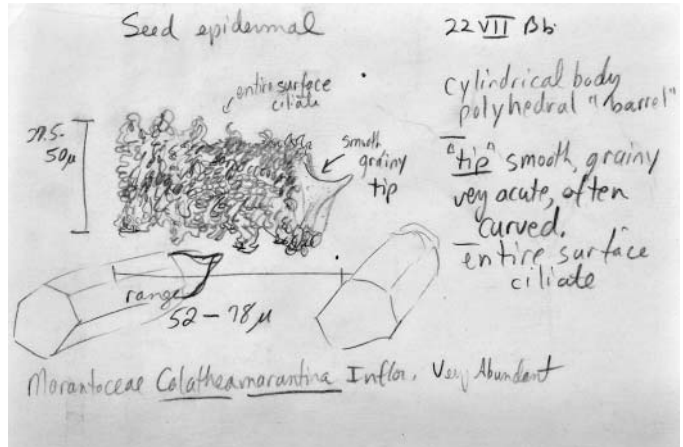 Seed epidermal
22 VII Bb.
entire surface
ciliate
smooth
grainy
tip
50μ
cylindrical body
polyhedral "barrel"
"tip" smooth, grainy
very acute, often
curved.
entire surface
ciliate
range
52 - 78μ
Marantoceae Calathea marantina Inflor. Very Abundant